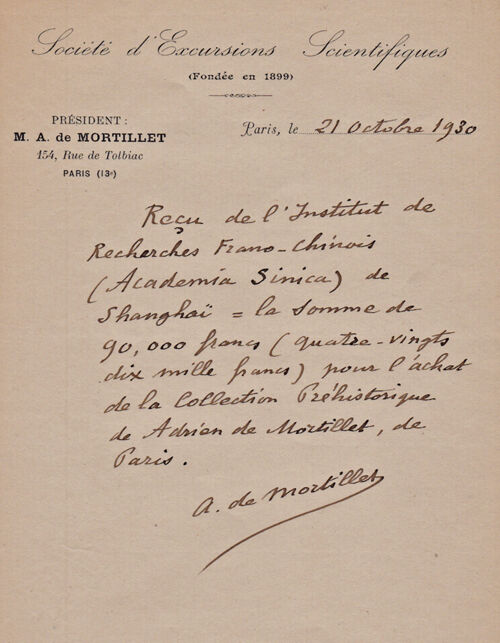 Société d'Excursions Scientifiques
(Fondée en 1899)
PRÉSIDENT :
M. A. de MORTILLET
154, Rue de Tolbiac
PARIS (13e)
Paris, le 21 octobre 1930
Reçu de l'Institut de
Recherches Frano-Chinois
(Academia Sinica) de
Shanghaï = la somme de
90,000 francs (quatre-vingts
dix mille francs) pour l'achat
de la Collection Préhistorique
de Adrien de Mortillet, de
Paris.
A. de Mortillet